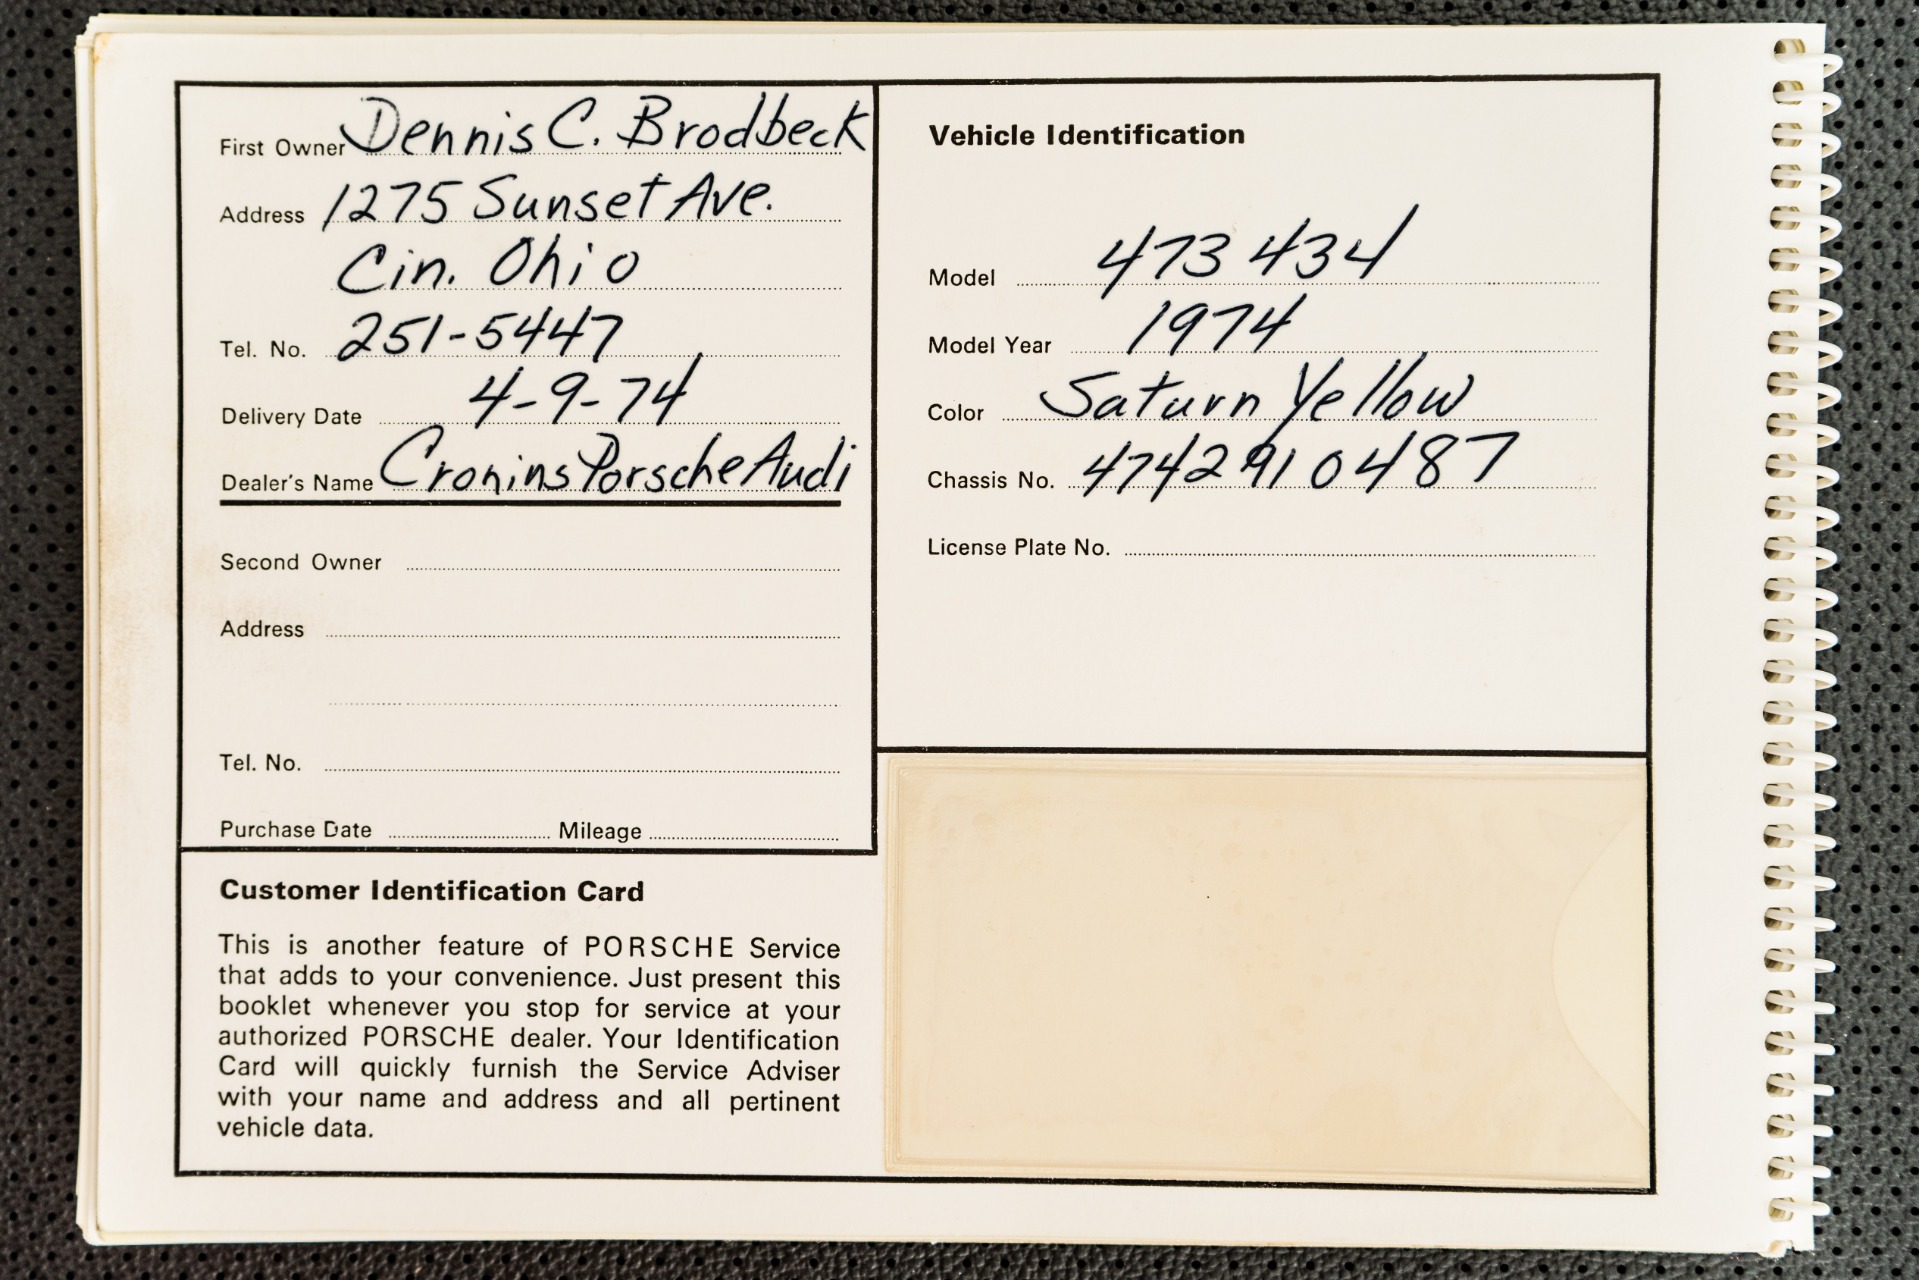 First Owner Dennis C. Brodbeck
Address 1275 Sunset Ave.
Cin. Ohio
Tel. No. 251-5447
Delivery Date 4-9-74
Dealer's Name Cronins Porsche Audi
Second Owner
Address
Tel. No.
Purchase Date Mileage
Vehicle Identification
Model 473434
Model Year 1974
Color Saturn Yellow
Chassis No. 4742910487
License Plate No.
Customer Identification Card
This is another feature of PORSCHE Service
that adds to your convenience. Just present this
booklet whenever you stop for service at your
authorized PORSCHE dealer. Your Identification
Card will quickly furnish the Service Adviser
with your name and address and all pertinent
vehicle data.